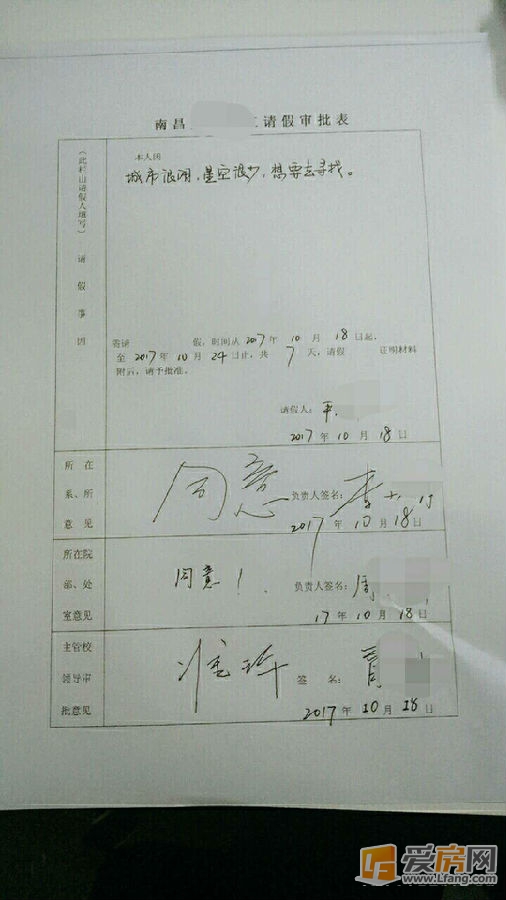 南昌 请假审批表
（此栏由请假人填写） 请假事因
本人因
城市很闹，星空很少，想要去寻找。
需请 假，时间从2017年10月18日起，
至2017年10月24日止，共7天，请假 证明材料
附后，请予批准。
请假人：
2017年10月18日
所在系、所意见
同意
负责人签名：李
2017年10月18日
所在院部、处室意见
同意！
负责人签名：周
17年10月18日
主管校领导审批意见
准
签名：
2017年10月18日
爱房网
www.Lfang.com